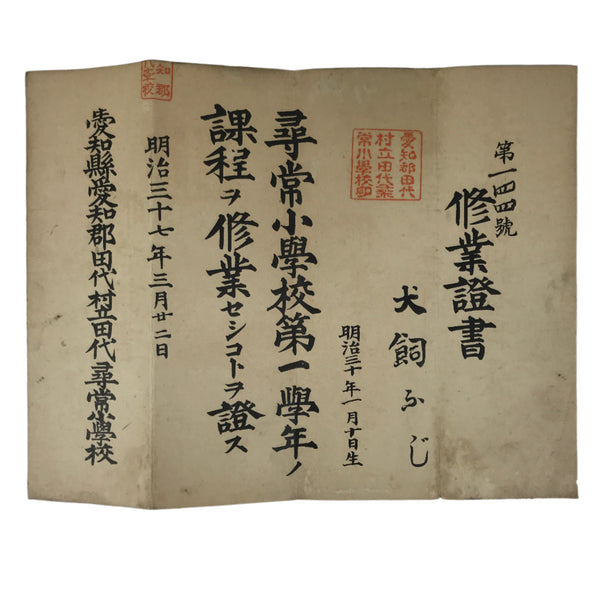 第一四四號
修業證書
犬飼ふじ
明治三十年一月十日生
愛知郡田代
村立田代尋
常小學校印
尋常小學校第一學年ノ
課程ヲ修業セシコトヲ證ス
明治三十七年三月廿二日
知郡
代尋校
愛知縣愛知郡田代村立田代尋常小學校